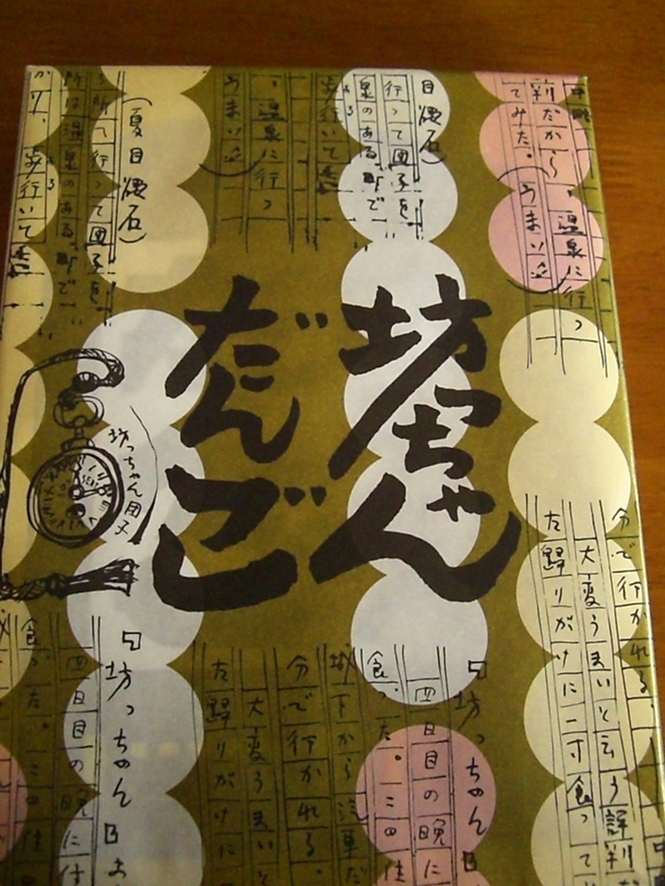 中略
判だから
、温泉に行っ
てみた。
(うまい
目漱石)
行って団子を
泉のある町で
、温泉に行っ
うまい
(夏目漱石)
行って団子を
所は温泉のある町で
歩行いて
坊っちゃん
だんご
坊っちゃん団子
分で行かれる
大変うまいと云う評判
た帰りがけに一寸食って
『坊っちゃん』
四日目の晩に
食った。この住
城下から汽車だ
分で行かれる。
大変うまいと
た帰りがけに
『坊っちゃん』よ
四日目の晩に
食った。この住